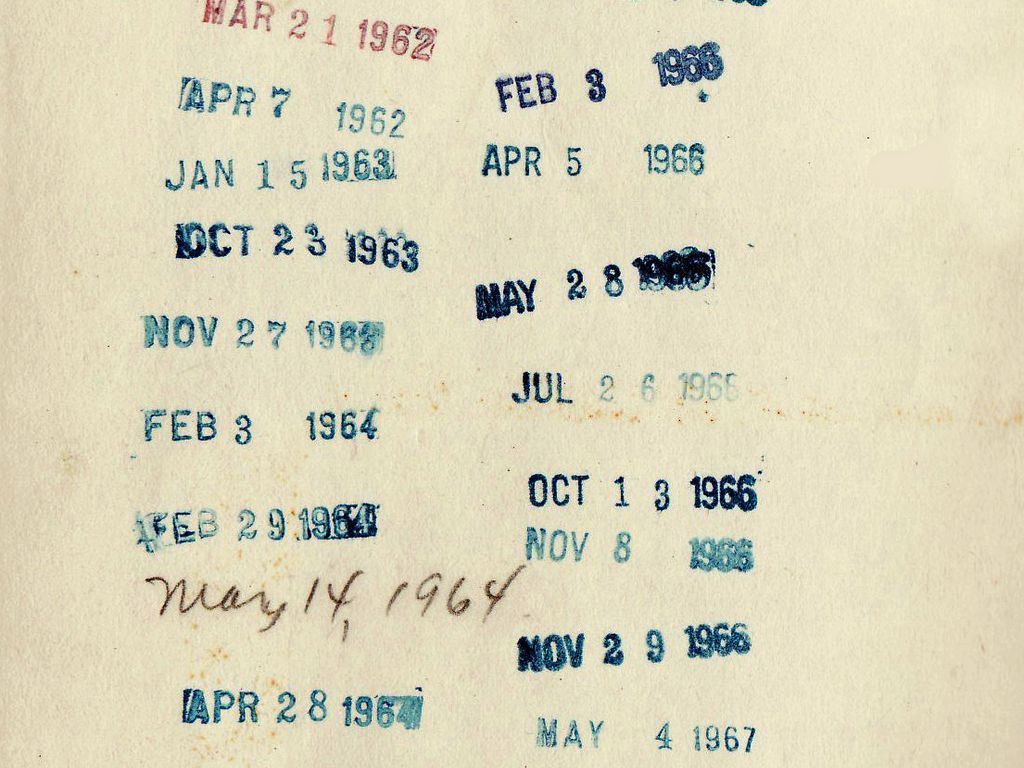 MAR 21 1962
APR 7 1962
JAN 15 1963
OCT 23 1963
NOV 27 1963
FEB 3 1964
FEB 29 1964
May 14, 1964
APR 28 1964
FEB 3 1966
APR 5 1966
MAY 28 1966
JUL 26 1966
OCT 13 1966
NOV 8 1966
NOV 29 1966
MAY 4 1967